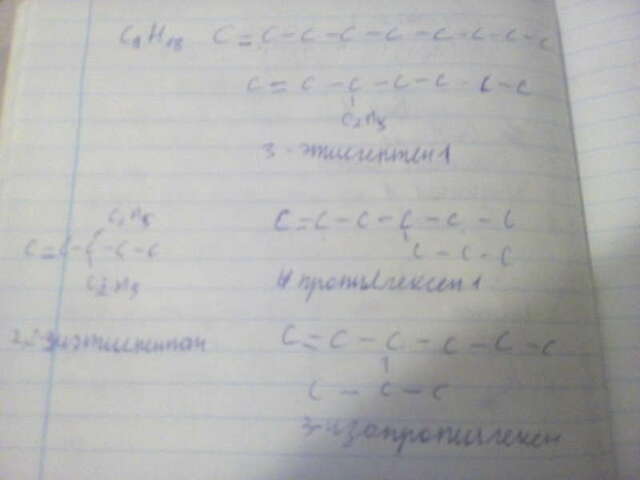 C₉H₁₈ C=C-C-C-C-C-C-C-C
C=C-C-C-C-C-C
C₂H₅
3-этилгептен 1
C₂H₅
C=C-C-C-C
C₂H₅
C=C-C-C-C-C
C-C-C
4 пропилгексен 1
C=C-C-C-C-C
C-C-C
3-изопропилгексен